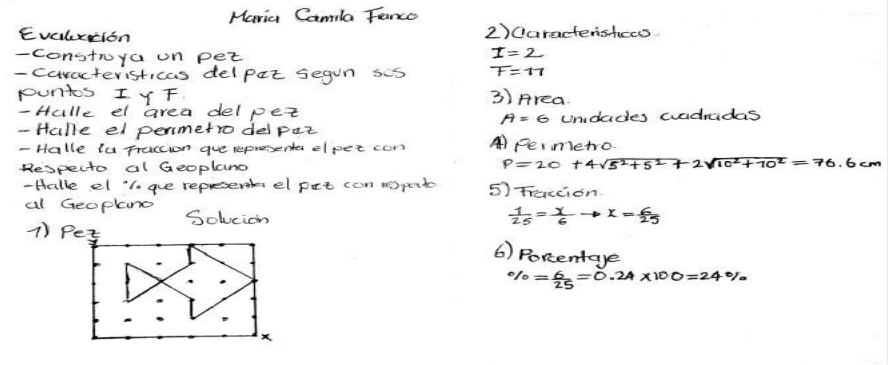 María Camila Franco
Evaluación
-Construya un pez
-Características del pez segun sus
puntos I y F.
-Halle el area del pez
-Halle el perimetro del pez
-Halle la Fracción que representa el pez con
Respecto al Geoplano
-Halle el % que representa el pez con respecto
al Geoplano
Solución
1) Pez
y
x
2) Caracteristicas.
I=2
F=11
3) Area.
A=6 unidades cuadradas
4) Perimetro.
P=20 +4√5²+5² + 2√10²+10² = 76.6cm
5) Fracción.
1/25 = x/6 → x = 6/25
6) Porcentaje
% = 6/25 = 0.24 x100=24%